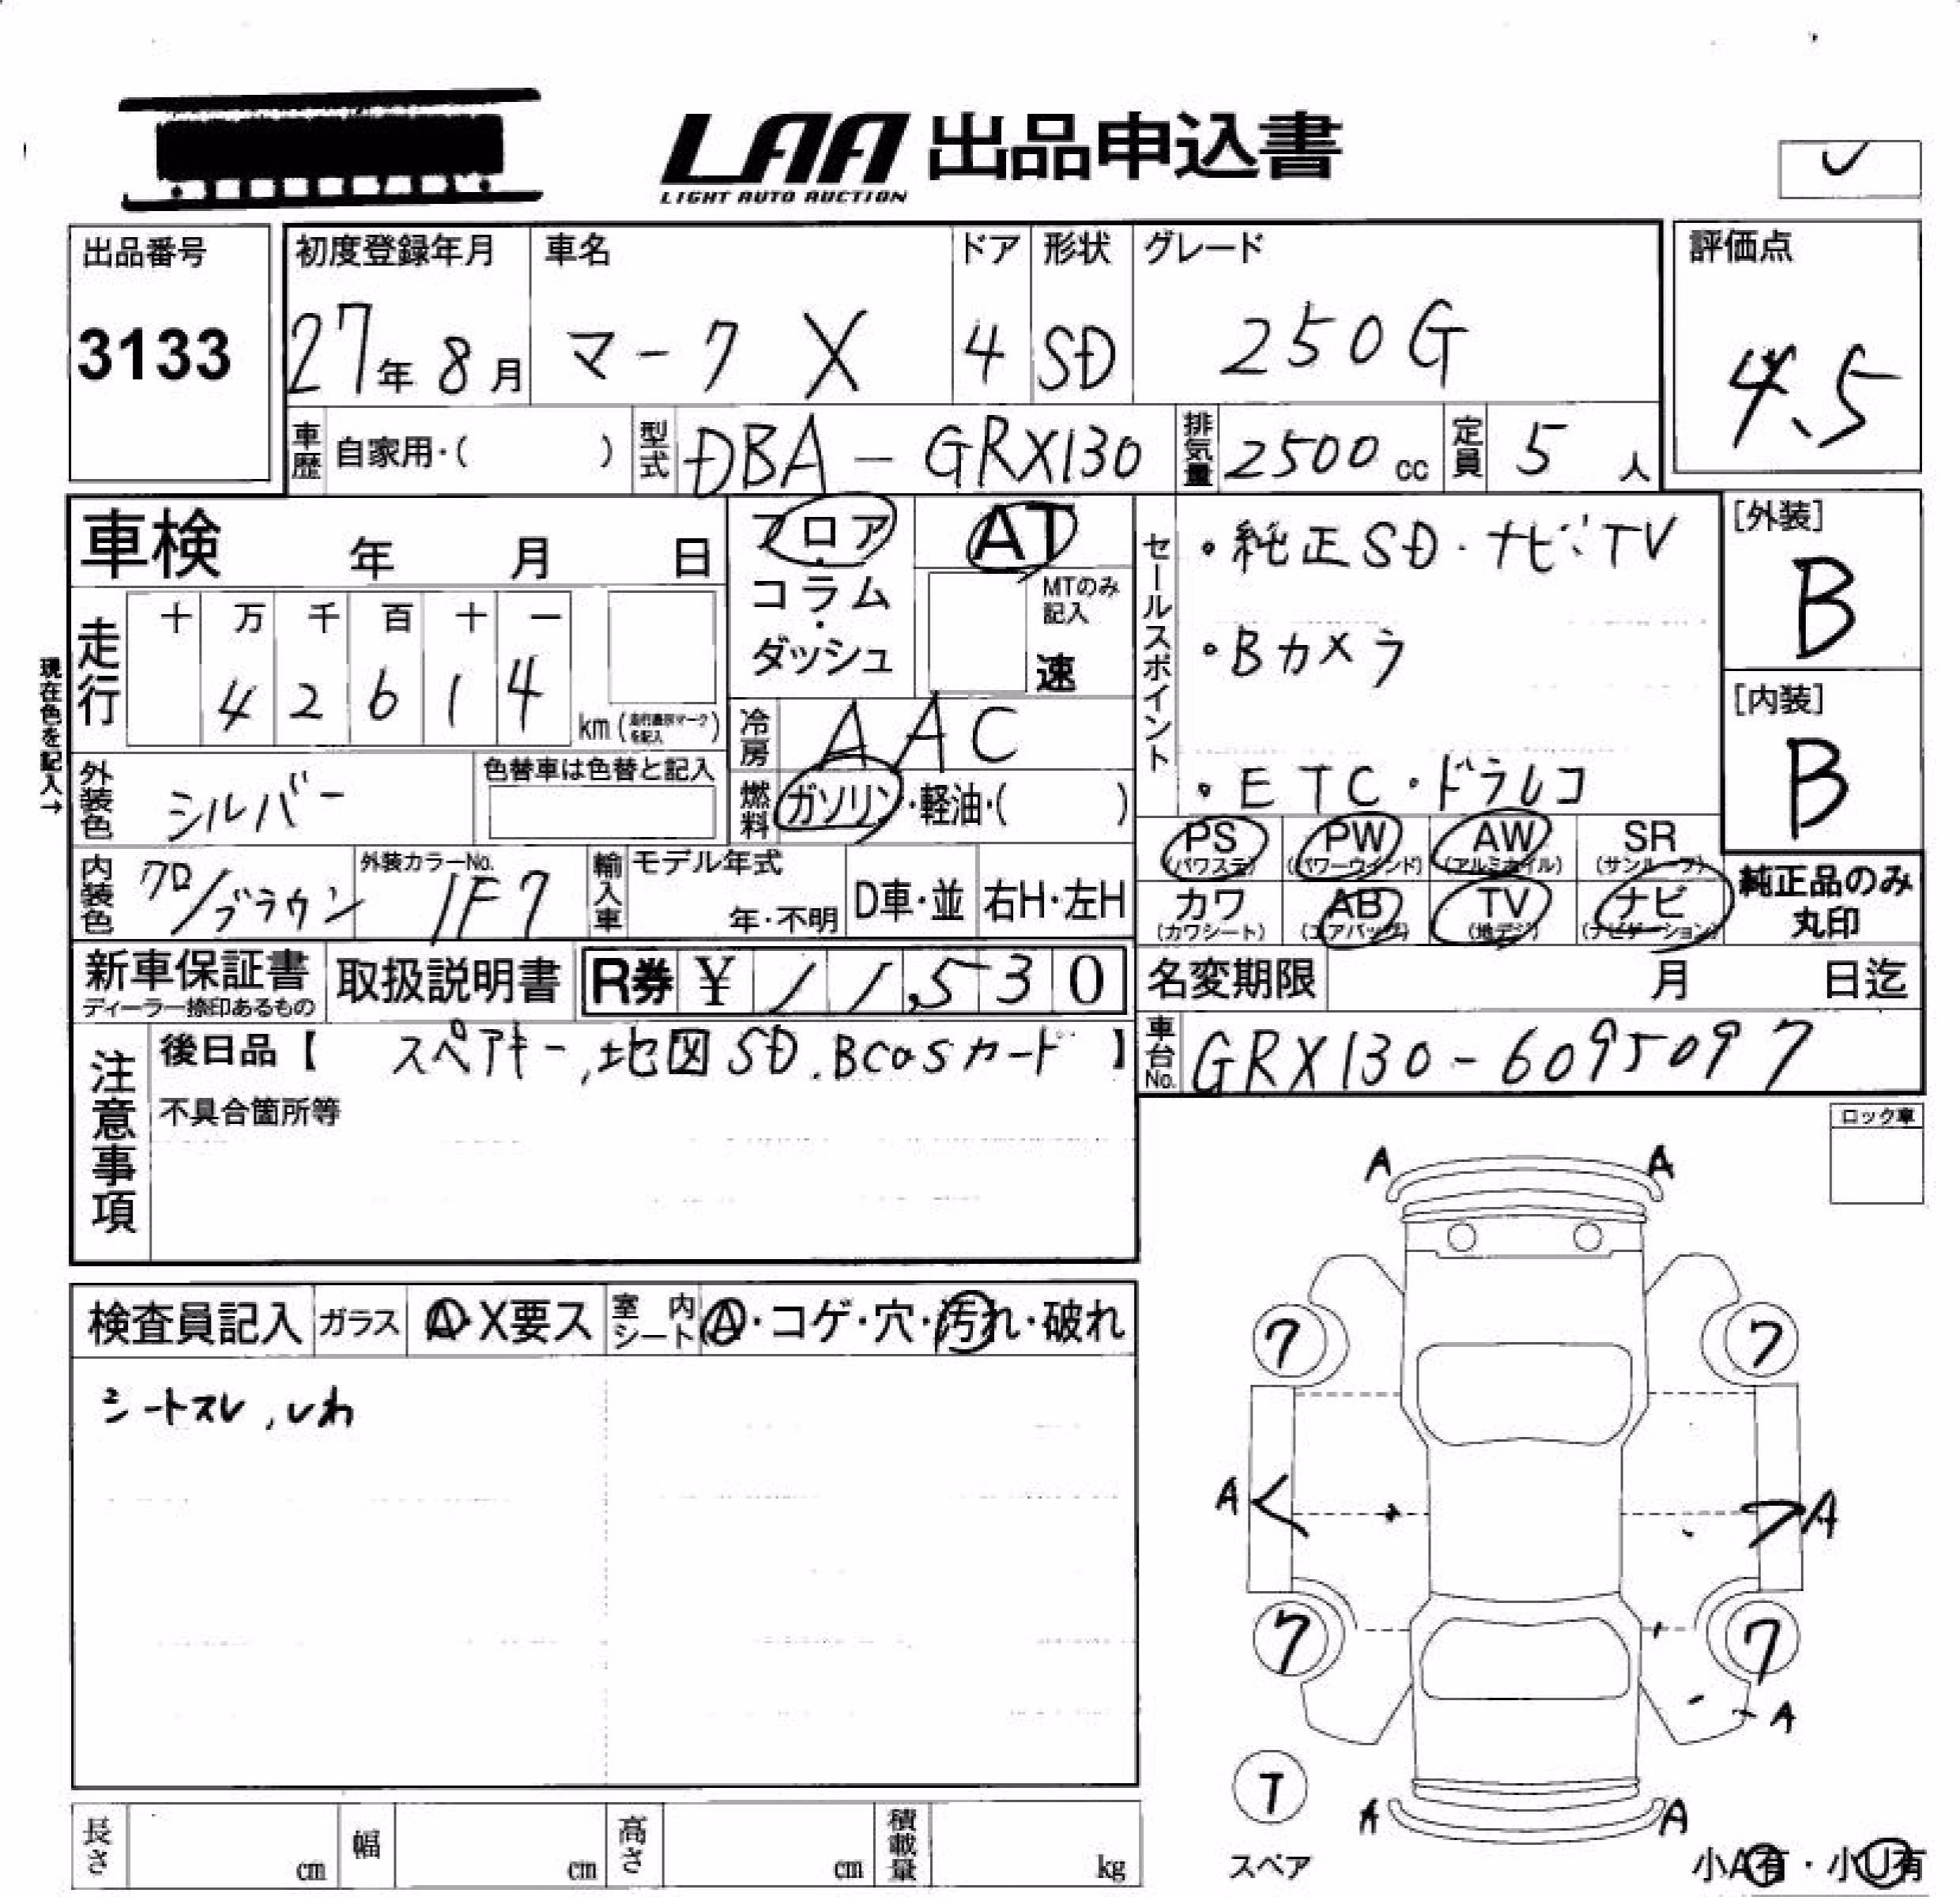 LAA 出品申込書
LIGHT AUTO AUCTION
出品番号
3133
初度登録年月
27年 8月
車名
マーク X
ドア
4
形状
SD
グレード
250G
評価点
4.5
車歴 自家用・( )
型式 DBA - GRX130
排気量 2500 cc
定員 5 人
車検 年 月 日
フロア・コラム・ダッシュ
AT
MTのみ記入
速
セールスポイント
・純正SD・ナビ・TV
・Bカメラ
・ETC・ドラレコ
[外装]
B
[内装]
B
現在色を記入→
走行
十 万 千 百 十 一
4 2 6 1 4
km (走行表示マークを記入)
冷房 AAC
燃料 ガソリン・軽油・( )
外装色 シルバー
色替車は色替と記入
内装色 クロ/ブラウン
外装カラーNo.
1F7
輸入車
モデル年式
年・不明
D車・並
右H・左H
PS (パワステ)
PW (パワーウインド)
AW (アルミホイル)
SR (サンルーフ)
カワ (カワシート)
AB (エアバッグ)
TV (地デジ)
ナビ (ナビゲーション)
純正品のみ丸印
新車保証書
ディーラー捺印あるもの
取扱説明書
R券 ¥ 11,530
名変期限 月 日迄
注意事項
後日品【 スペアキー, 地図SD. Bcasカード 】
不具合箇所等
車台No. GRX130-6095097
ロック車
検査員記入
ガラス A・X要ス
室内シート A・コゲ・穴・汚れ・破れ
シートスレ, しわ
A A
7 7
A A
7 7
A
T
スペア
A A
長さ cm
幅 cm
高さ cm
積載量 kg
小A有・小U有